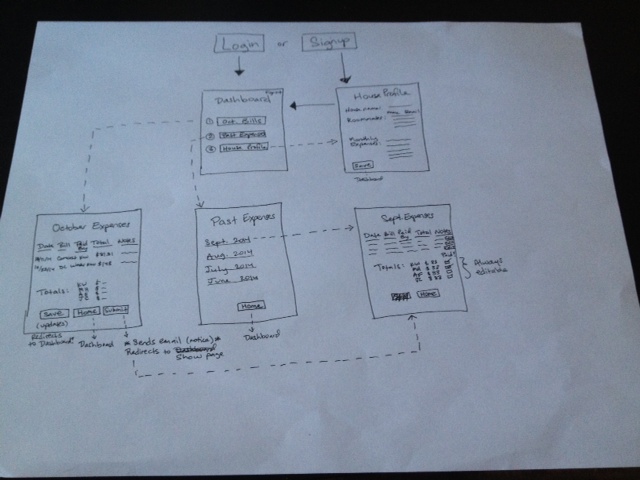 Login or Signup
Dashboard
① Oct. Bills
② Past Expenses
③ House Profile
House Profile
House name:
Roommates:
Monthly
Expenses:
Save
Dashboard
October Expenses
Date Bill Paid By Total Notes
Totals:
Save Home Submit
(updates)
Redirects
to Dashboard
Dashboard
* Sends email (notice) *
Redirects to
Show page
Past Expenses
Sept. 2014
Aug. 2014
July 2014
June 2014
Home
Dashboard
Sept Expenses
Date Bill Paid By Total Notes
Totals:
Home
Always
editable